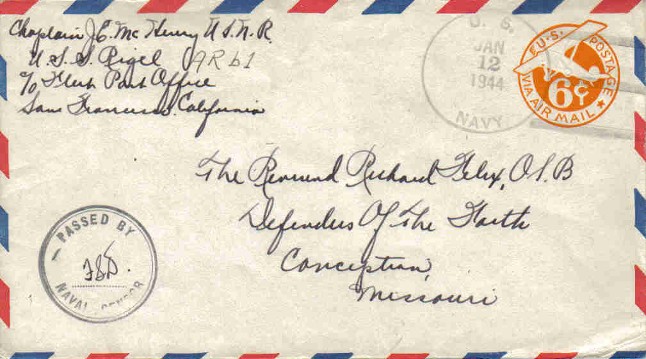 Chaplain J.E. McHenry U.S.N.R.
U.S.S. Rigel ARb1
c/o Fleet Post Office
San Francisco, California
U. S.
JAN
12
1944
NAVY
U.S. POSTAGE
6¢
VIA AIR MAIL
The Reverend Richard Felix, O.S.B
Defenders Of The Faith
Conception,
Missouri
PASSED BY
NAVAL CENSOR